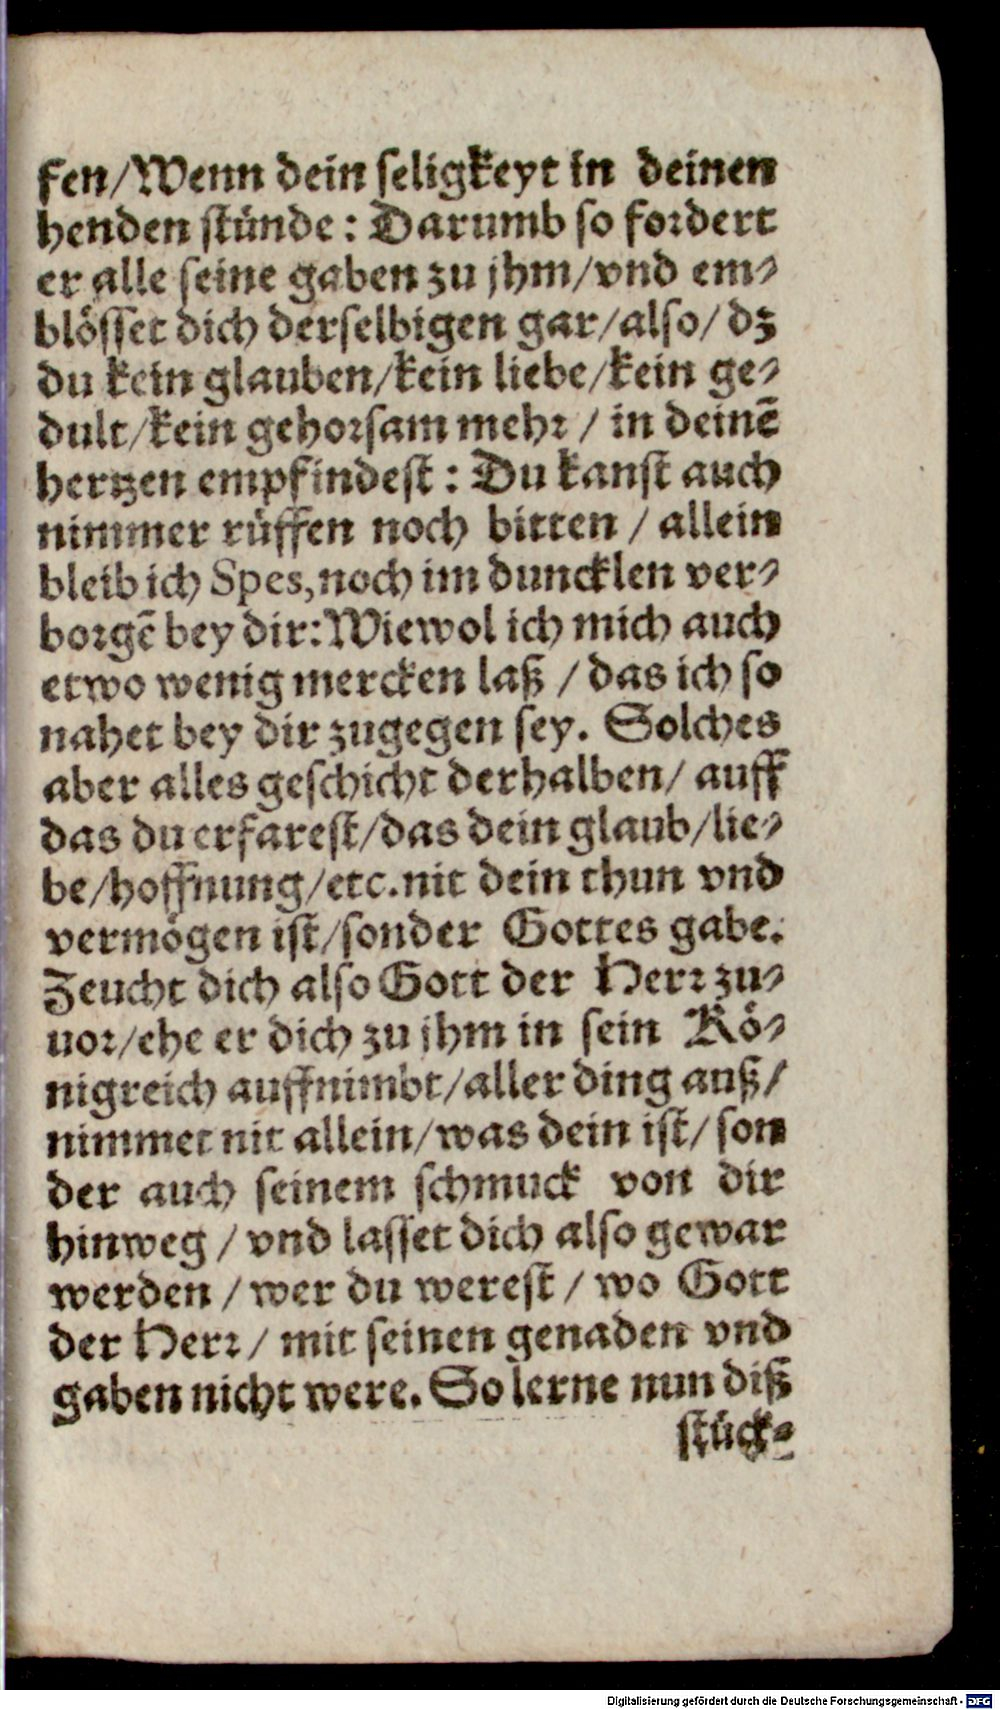 fen/Wenn dein seligkeyt in deinen
henden stünde: Darumb so fordert
er alle seine gaben zu jhm/vnd em⸗
blösset dich derselbigen gar/also/dz
du kein glauben/kein liebe/kein ge⸗
dult/kein gehorsam mehr / in deinē
hertzen empfindest: Du kanst auch
nimmer rüffen noch bitten / allein
bleib ich Spes, noch im duncklen ver⸗
borgē bey dir: Wiewol ich mich auch
etwo wenig mercken laß / das ich so
nahet bey dir zugegen sey. Solches
aber alles geschicht derhalben/ auff
das du erfarest/das dein glaub/lie⸗
be/hoffnung/etc. nit dein thun vnd
vermögen ist/sonder Gottes gabe.
Zeucht dich also Gott der Herr zu⸗
uor/ehe er dich zu jhm in sein Kö⸗
nigreich auffnimbt/aller ding auß/
nimmet nit allein/was dein ist/ son
der auch seinem schmuck von dir
hinweg / vnd lasset dich also gewar
werden / wer du werest / wo Gott
der Herr / mit seinen genaden vnd
gaben nicht were. So lerne nun diß
stück⸗
Digitalisierung gefördert durch die Deutsche Forschungsgemeinschaft - DFG